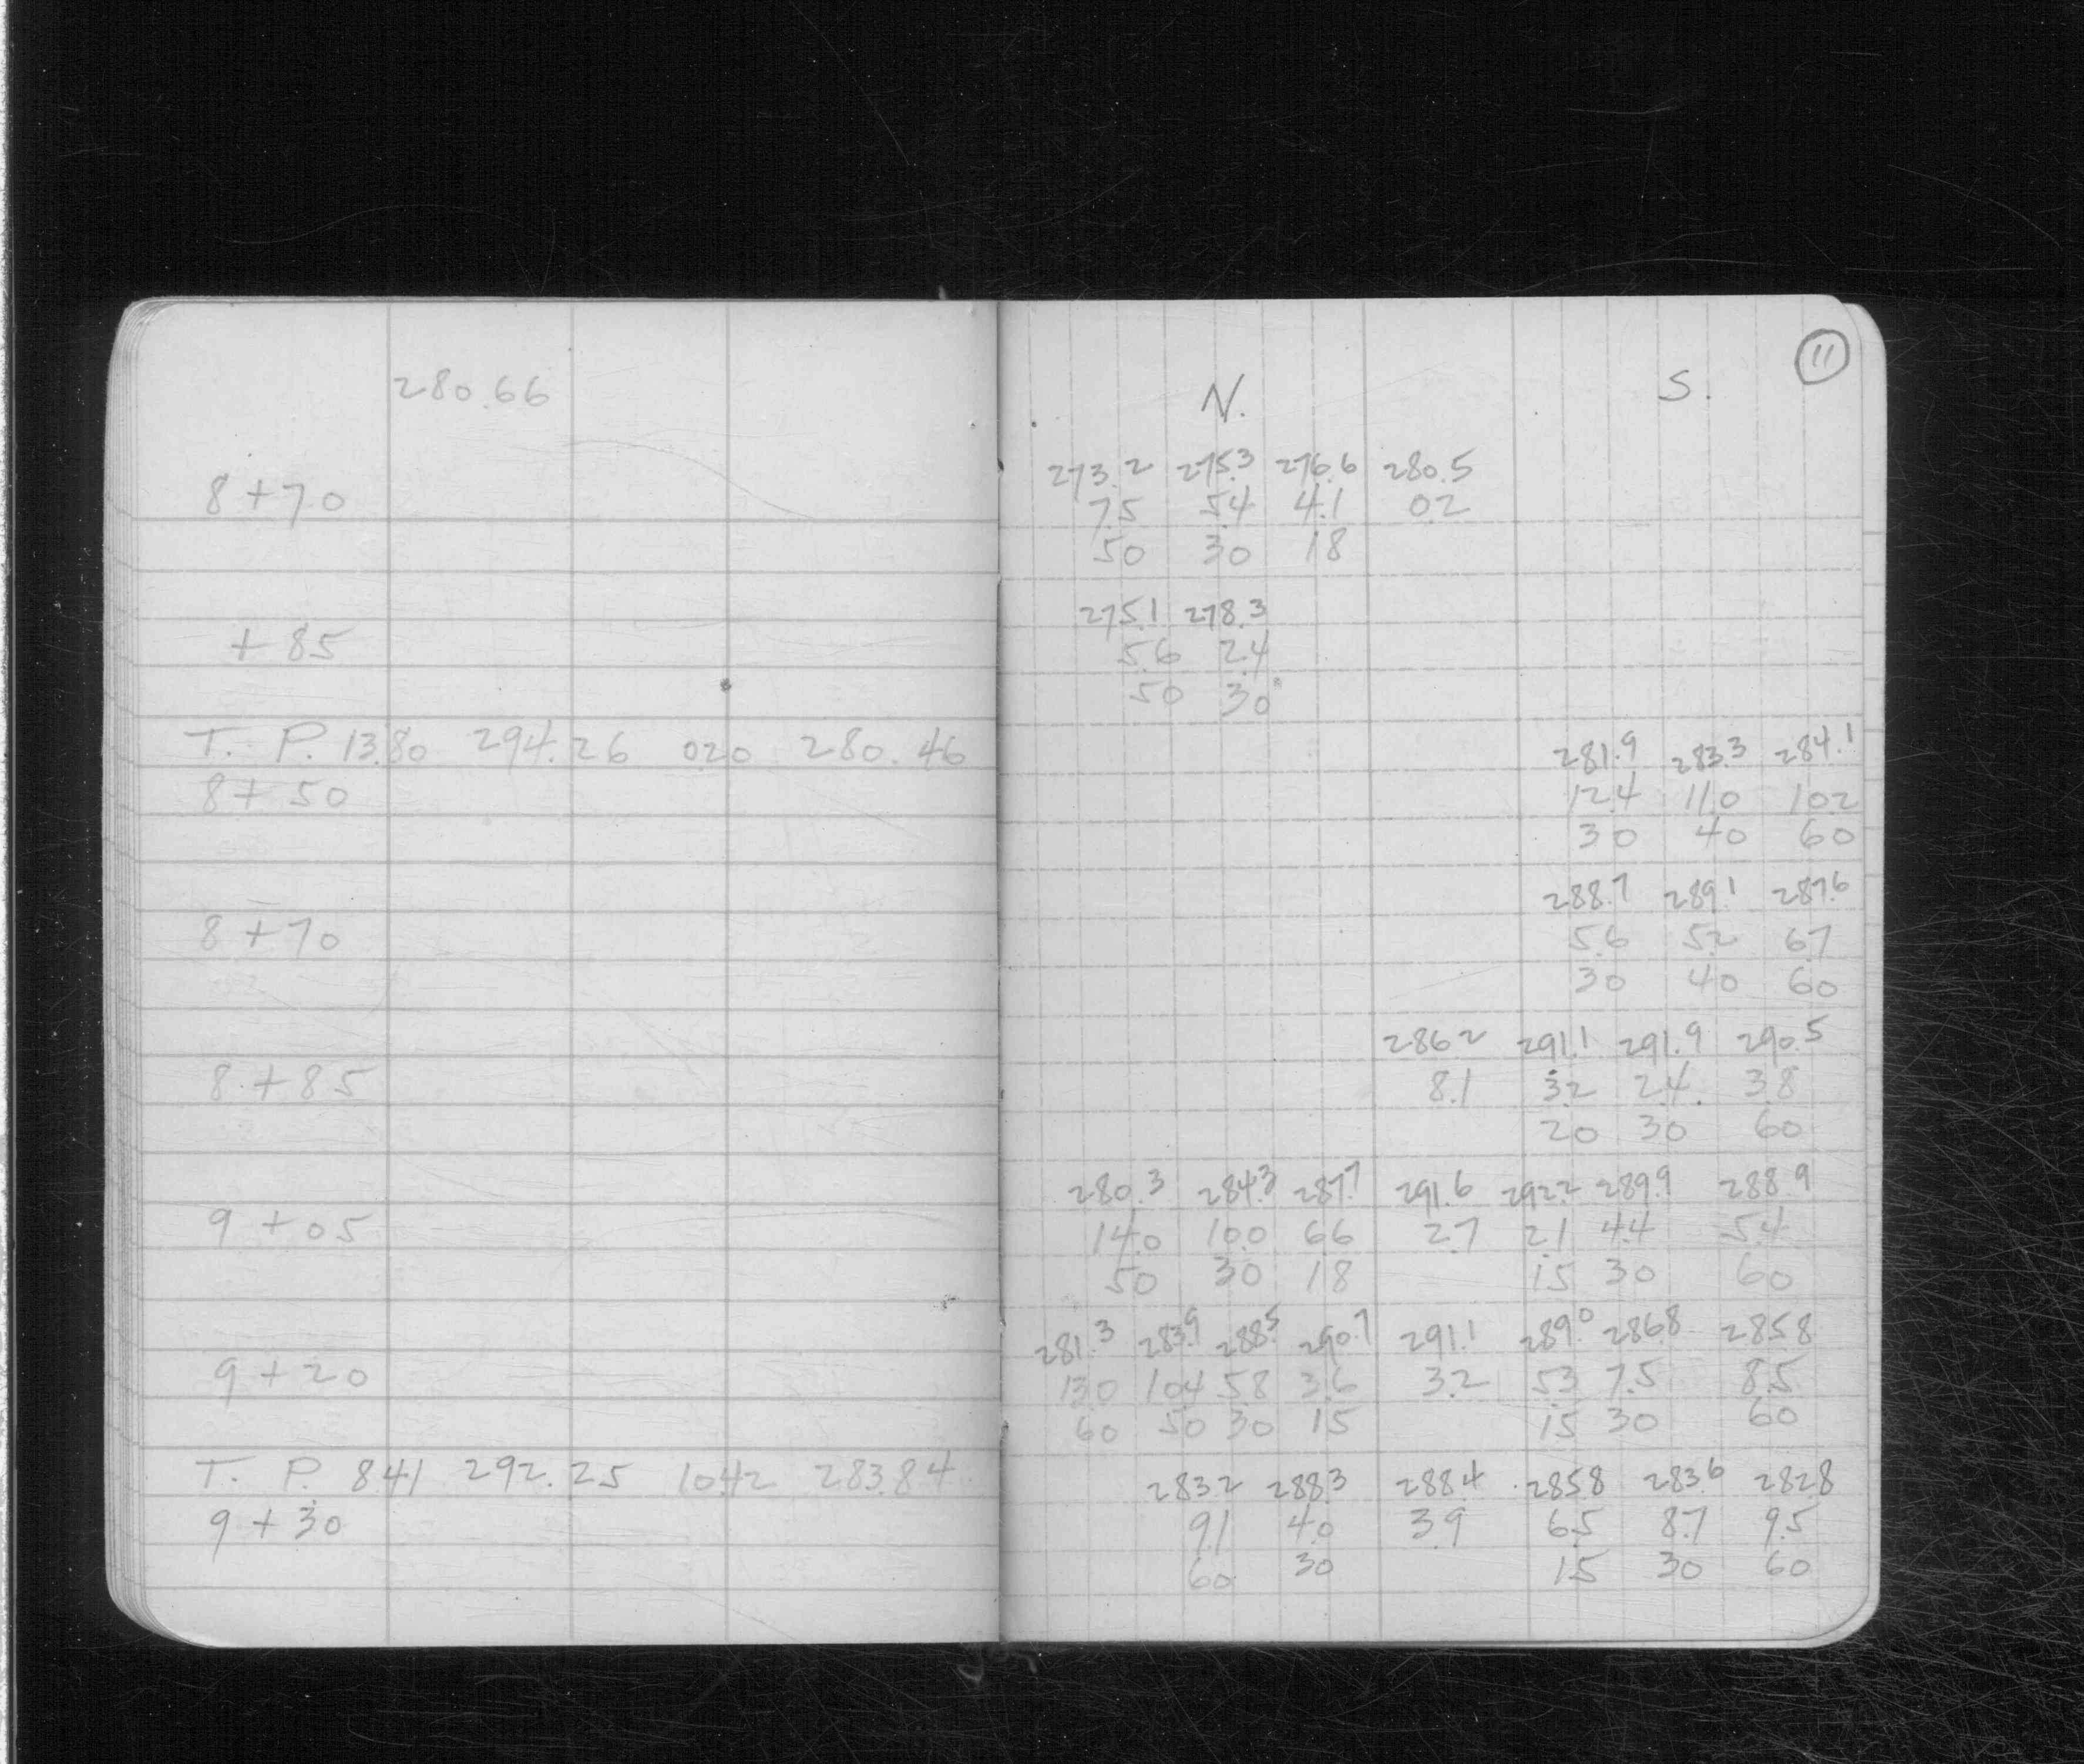 280.66
8+70
+85
T. P. 13.80 294.26 0.20 280.46
8+50
8+70
8+85
9+05
9+20
T. P. 8.41 292.25 10.42 283.84
9+30
11
N. S.
273.2 275.3 276.6 280.5
7.5 5.4 4.1 0.2
50 30 18
275.1 278.3
5.6 2.4
50 30
281.9 283.3 284.1
12.4 11.0 10.2
30 40 60
288.7 289.1 287.6
5.6 5.2 6.7
30 40 60
286.2 291.1 291.9 290.5
8.1 3.2 2.4 3.8
20 30 60
280.3 284.3 287.7 291.6 292.2 289.9 288.9
14.0 10.0 6.6 2.7 2.1 4.4 5.4
50 30 18 15 30 60
281.3 283.9 288.5 290.7 291.1 289.0 286.8 285.8
13.0 10.4 5.8 3.6 3.2 5.3 7.5 8.5
60 50 30 15 15 30 60
283.2 288.3 288.4 285.8 283.6 282.8
9.1 4.0 3.9 6.5 8.7 9.5
60 30 15 30 60